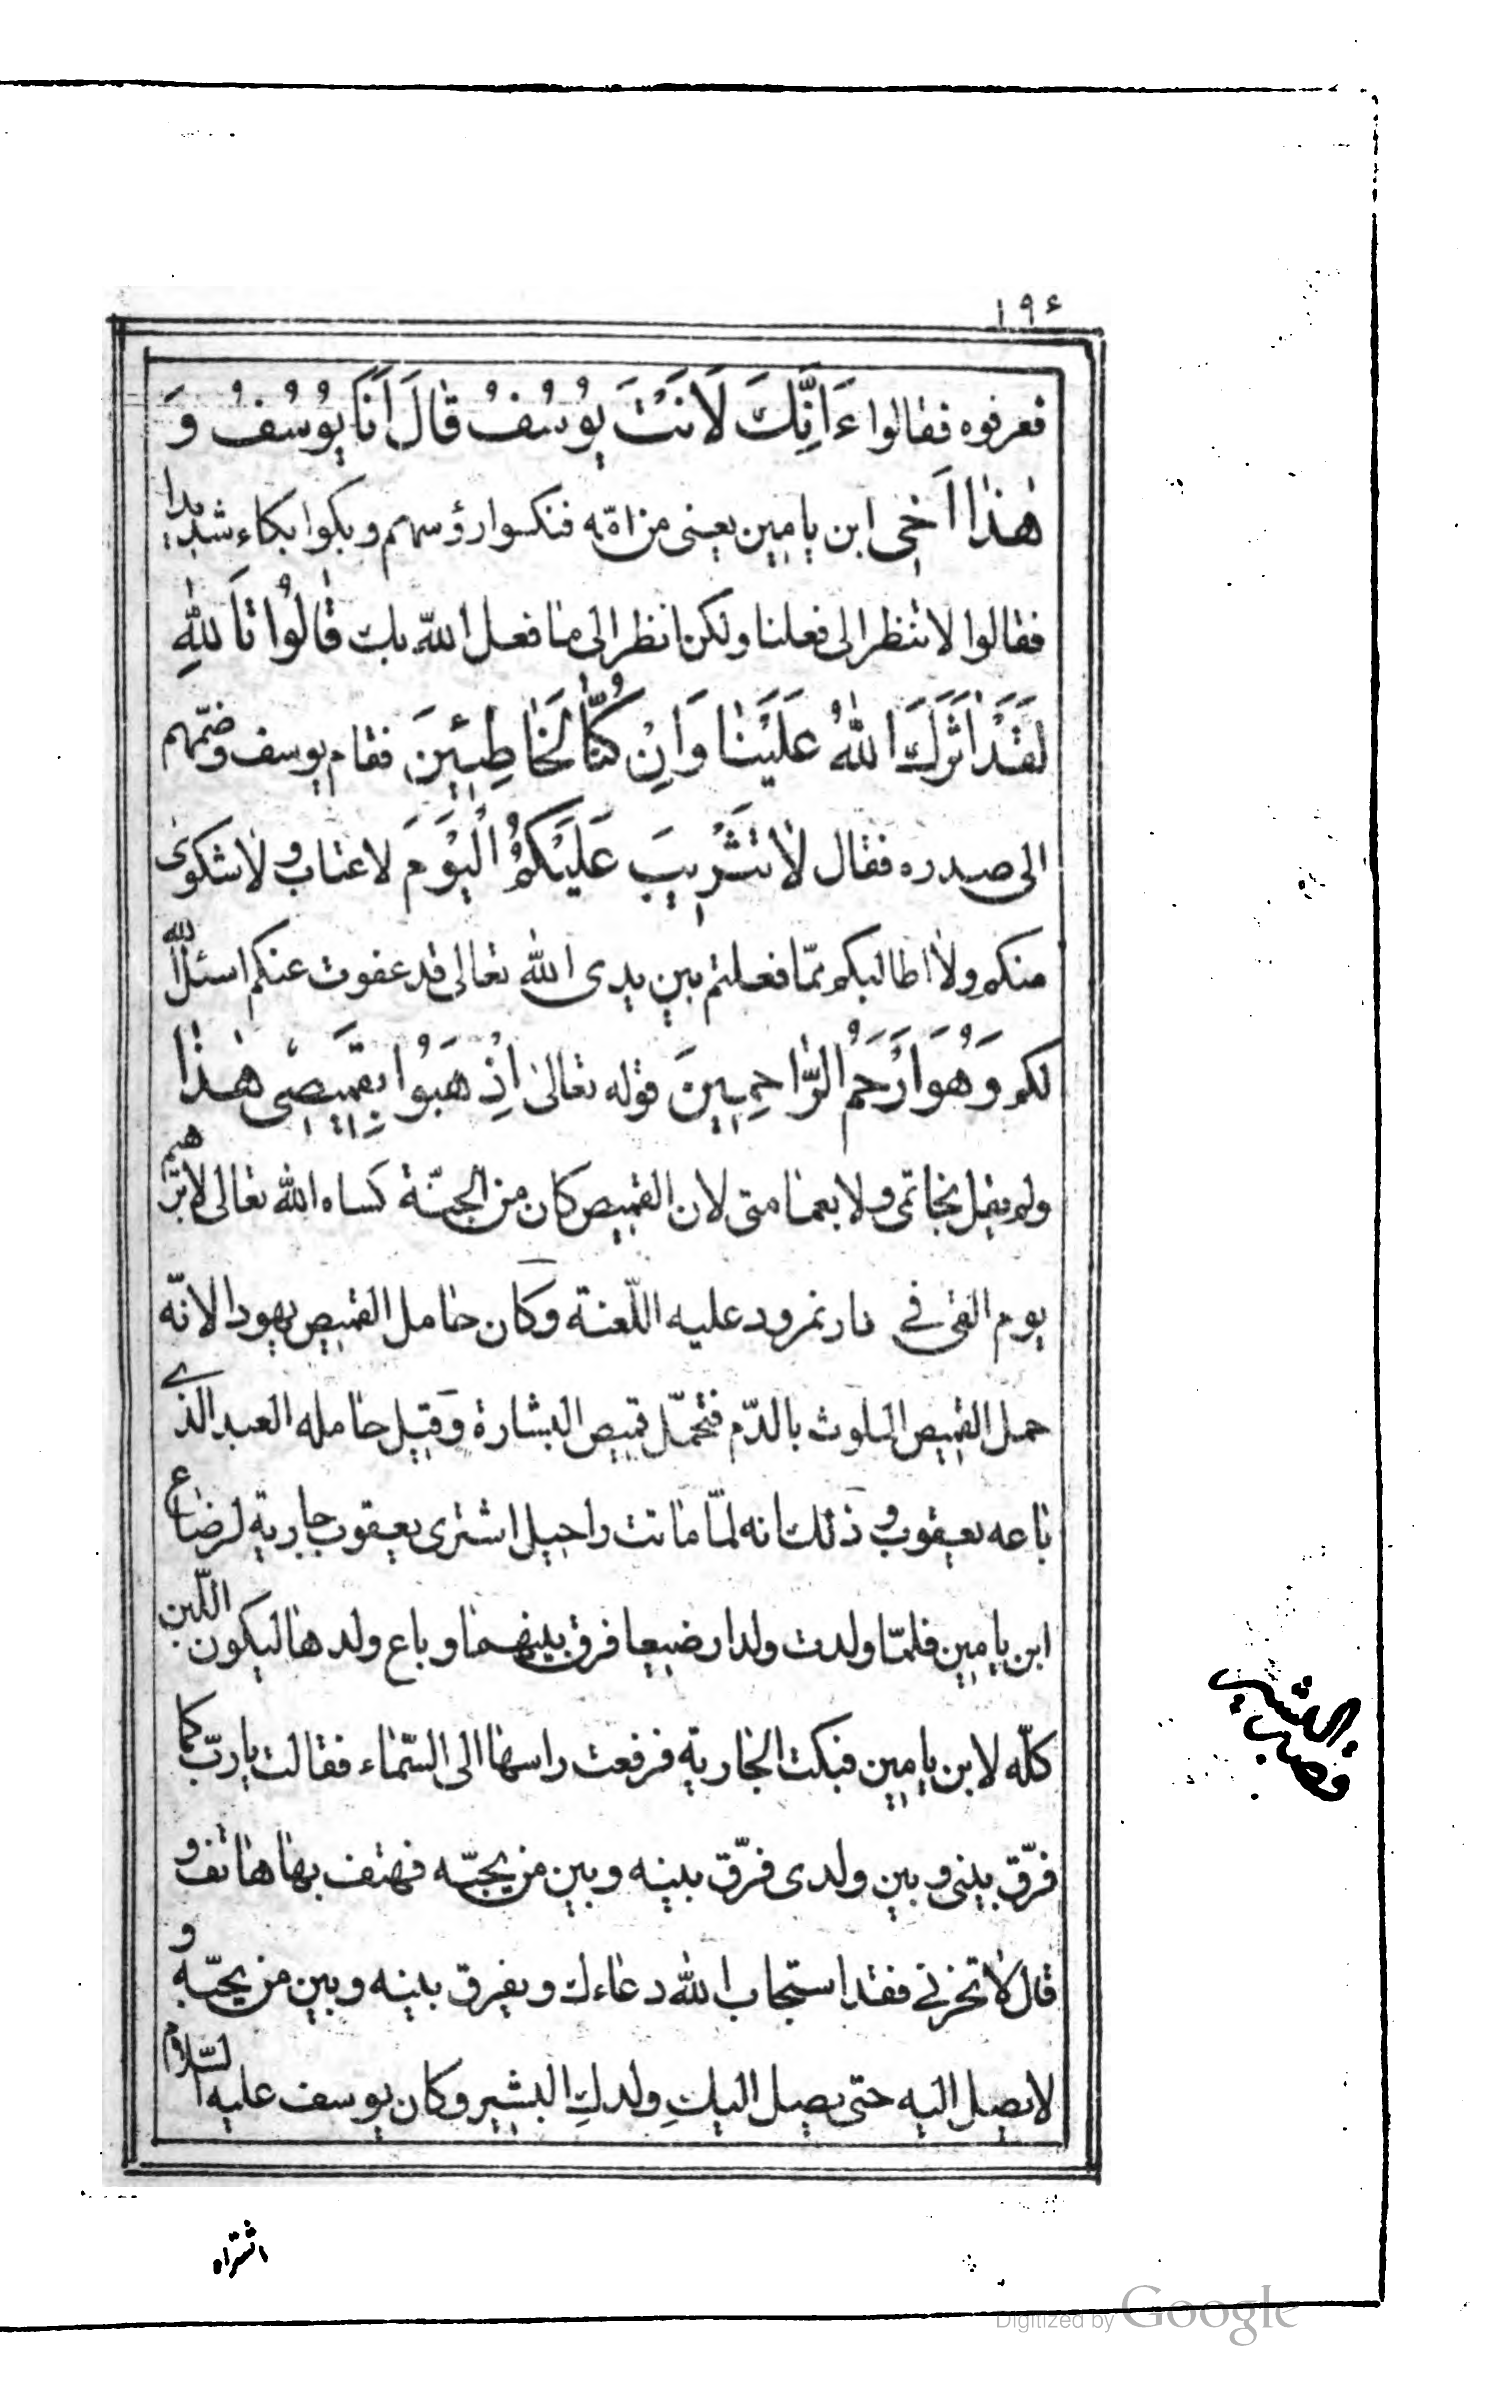 ١٩٤
فعرفوه فقالوا ءَاَنَّكَ لَاَنْتَ يُوسُفُ قٰالَ اَنَا يُوسُفُ وَ
هٰذٰا اَخٖى ابن يامين يعنى من امّه فنكسوا رؤسهم وبكوا بكاء شديدا
فقالوا لا تنظر الى فعلنا ولكن انظر الى ما فعل اللّه بك قٰالُوا تَاللّٰهِ
لَقَدْ اٰثَرَكَ اللّٰهُ عَلَيْنٰا وَاِنْ كُنّٰا لَخٰاطِئٖينَ فقام يوسف وضمّهم
الى صدره فقال لٰا تَثْرٖيبَ عَلَيْكُمُ الْيَوْمَ لا عتاب ولا شكوى
منكم ولا اطالبكم ممّا فعلتم بين يدى اللّه تعالى قد عفوت عنكم اسئل اللّه
لكم وَهُوَ اَرْحَمُ الرّٰاحِمٖينَ قوله تعالى اِذْهَبُوا بِقَمٖيصٖى هٰذٰا
ولم يقل بخاتمى ولا بعمامتى لان القميص كان من الجنّة كساه اللّه تعالى لابرٰهيم
يوم القى فى نار نمرود عليه اللّعنة وكان حامل القميص يهودا لانّه
حمل القميص الملوث بالدّم فتحمّل قميص البشارة وقيل حامله العبد الذى
باعه يعقوب و ذلك انه لمّا ماتت راحيل اشترى يعقوب جارية لرضاع
ابن يامين فلمّا ولدت ولدا رضيعا فرق بينهما وباع ولدها ليكون اللّبن
كلّه لابن يامين فبكت الجارية فرفعت راسها الى السّماء فقالت يا ربّ كما
فرّق بينى وبين ولدى فرّق بينه وبين من يحبّه فهتف بها هاتف و
قال لا تحزنى فقد استجاب اللّه دعاءك ويفرق بينه وبين من يحبّه و
لا يصل اليه حتى يصل اليكِ ولدكِ البشير وكان يوسف عليه السّلام
اشتراه
Digitized by Google